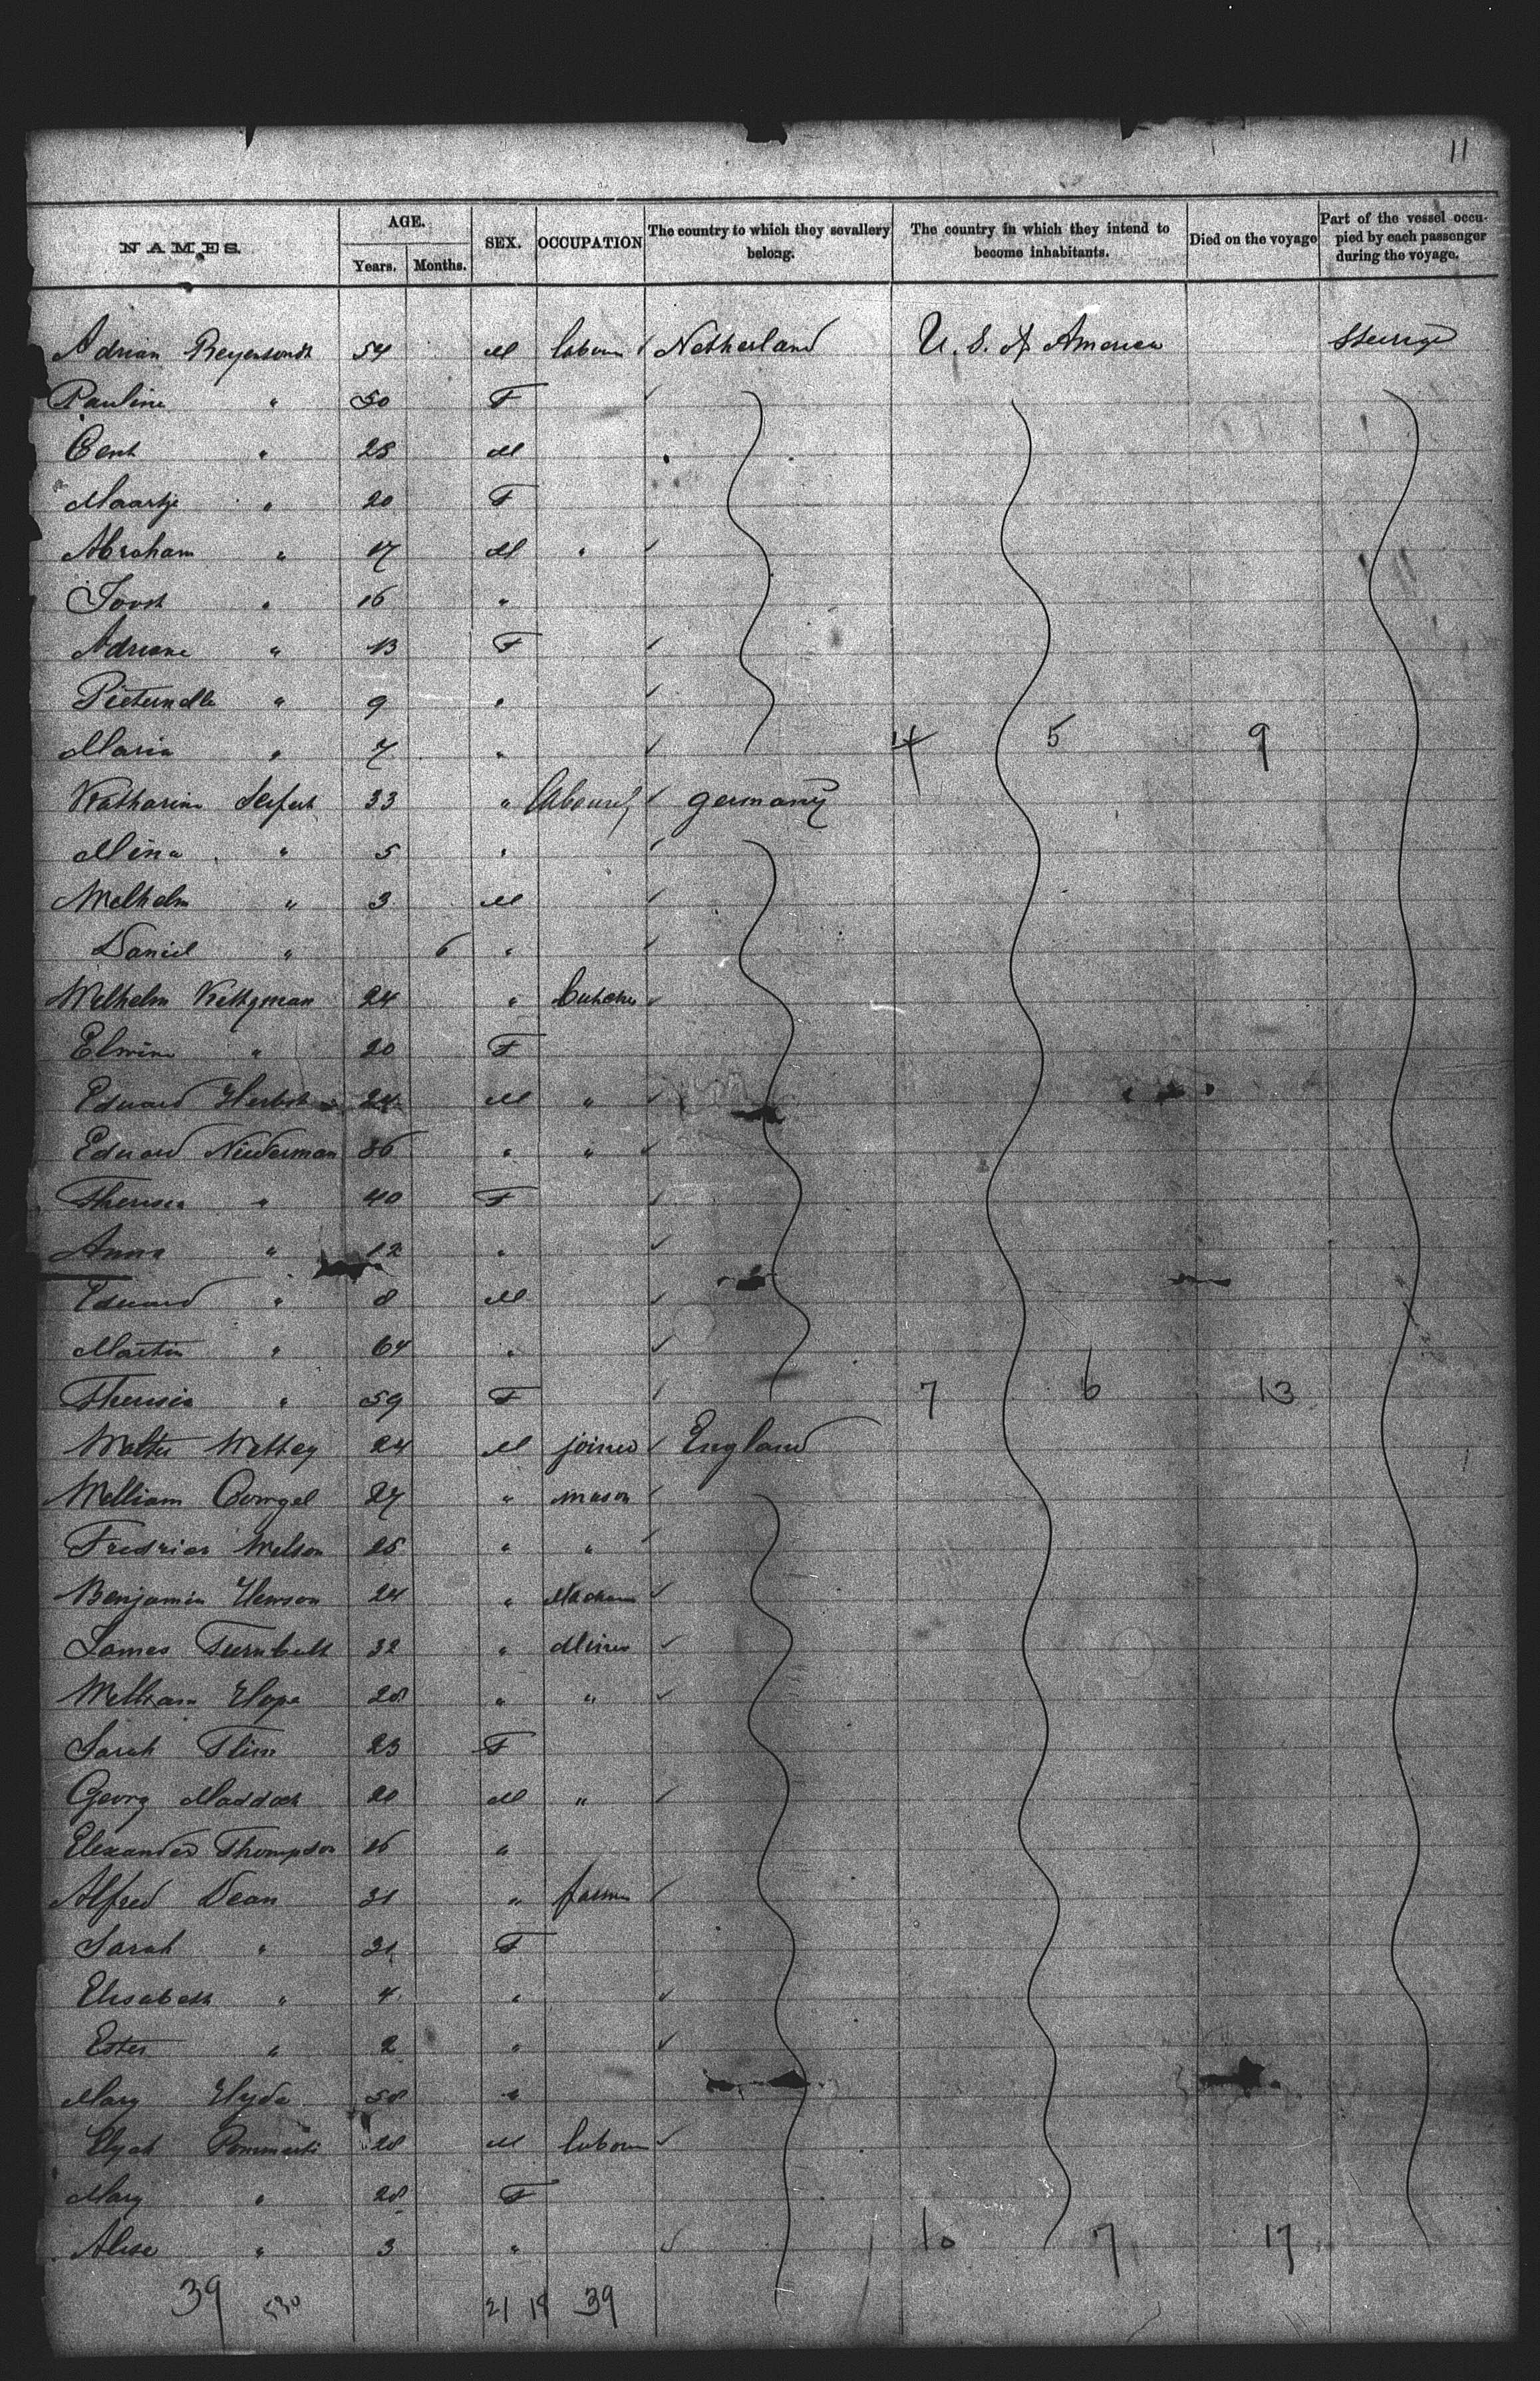 11
NAMES. AGE. SEX. OCCUPATION The country to which they sevallery belong. The country in which they intend to become inhabitants. Died on the voyage Part of the vessel occupied by each passenger during the voyage.
Years. Months.
Adrian 54 M labour Netherland U. S. of America Steerage
Pauline " 50 F
" 28 M
Maartje " 20 F
Abraham " 17 M "
Joost " 16 "
Adriane " 13 F
" 9 "
Maria " 7 " 4 5 9
Katharine Seifert 33 " germany
Mina " 5 "
Wilhelm " 3 M
Daniel " 6 "
Wilhelm 24 " butcher
" 20 F
Eduard Herbst 24 M "
Eduard Niederman 36 " "
Theresia " 40 F
Anna " 12 "
Eduard " 8 M
Martin " 64 "
Theresia " 59 F 7 6 13
Walter 24 M joiner England
William 27 " mason
Wilson 25 " "
Benjamin Hewson 24 "
James Turnbull 32 " Miner
William Hope 28 " "
Sarah 23 F
Georg Maddock 20 M "
Elexander Thompson 16 "
Alfred Dean 31 " farmer
Sarah " 31 F
Elisabeth " 4 "
Ester " 2 "
Mary Hyde 58 "
28 M labour
Mary " 28 F
Alise " 3 " 10 7 17
39 530 21 18 39